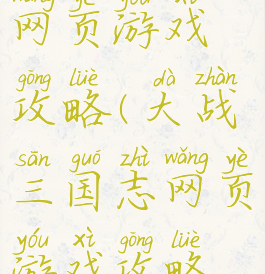 wǎng yè yóu xì
网页游戏
gōng lüè dà zhàn
攻略(大战
sān guó zhì wǎng yè
三国志网页
yóu xì gōng lüè
游戏攻略